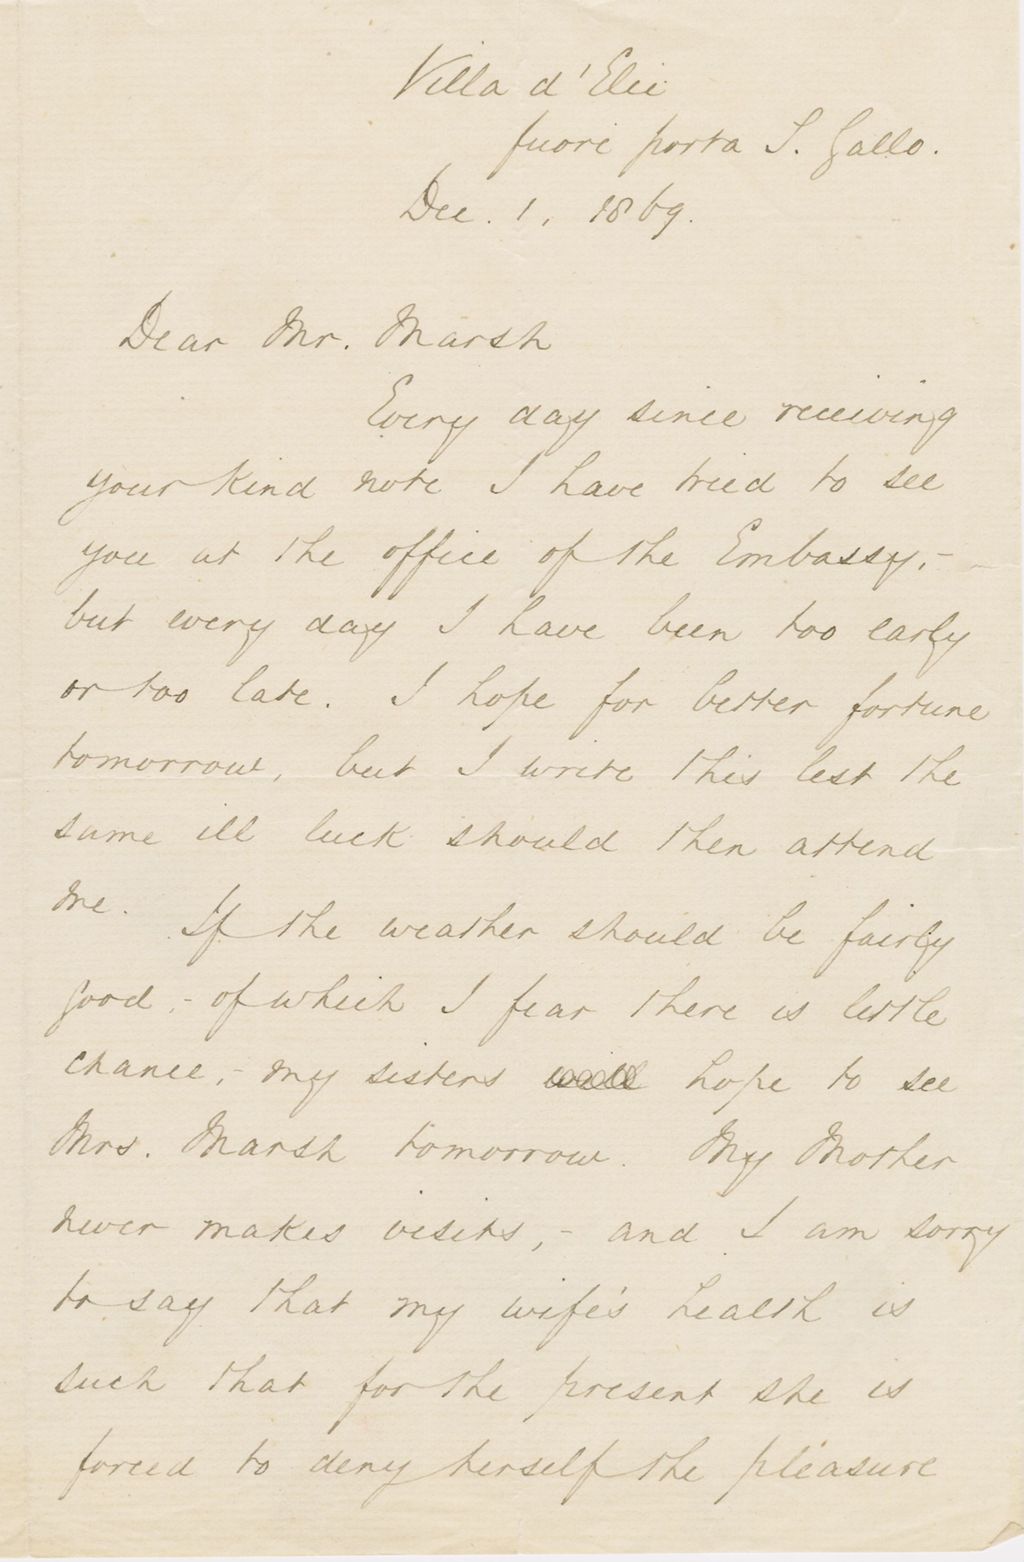 Villa d'Elci
fuori porta S. Gallo.
Dec. 1, 1869.
Dear Mr. Marsh
Every day since receiving
your kind note I have tried to see
you at the office of the Embassy,–
but every day I have been too early
or too late. I hope for better fortune
tomorrow, but I write this lest the
same ill luck should then attend
me.
If the weather should be fairly
good,– of which I fear there is little
chance,– my sisters will hope to see
Mrs. Marsh tomorrow. My Mother
never makes visits,– and I am sorry
to say that my wife's health is
such that for the present she is
forced to deny herself the pleasure